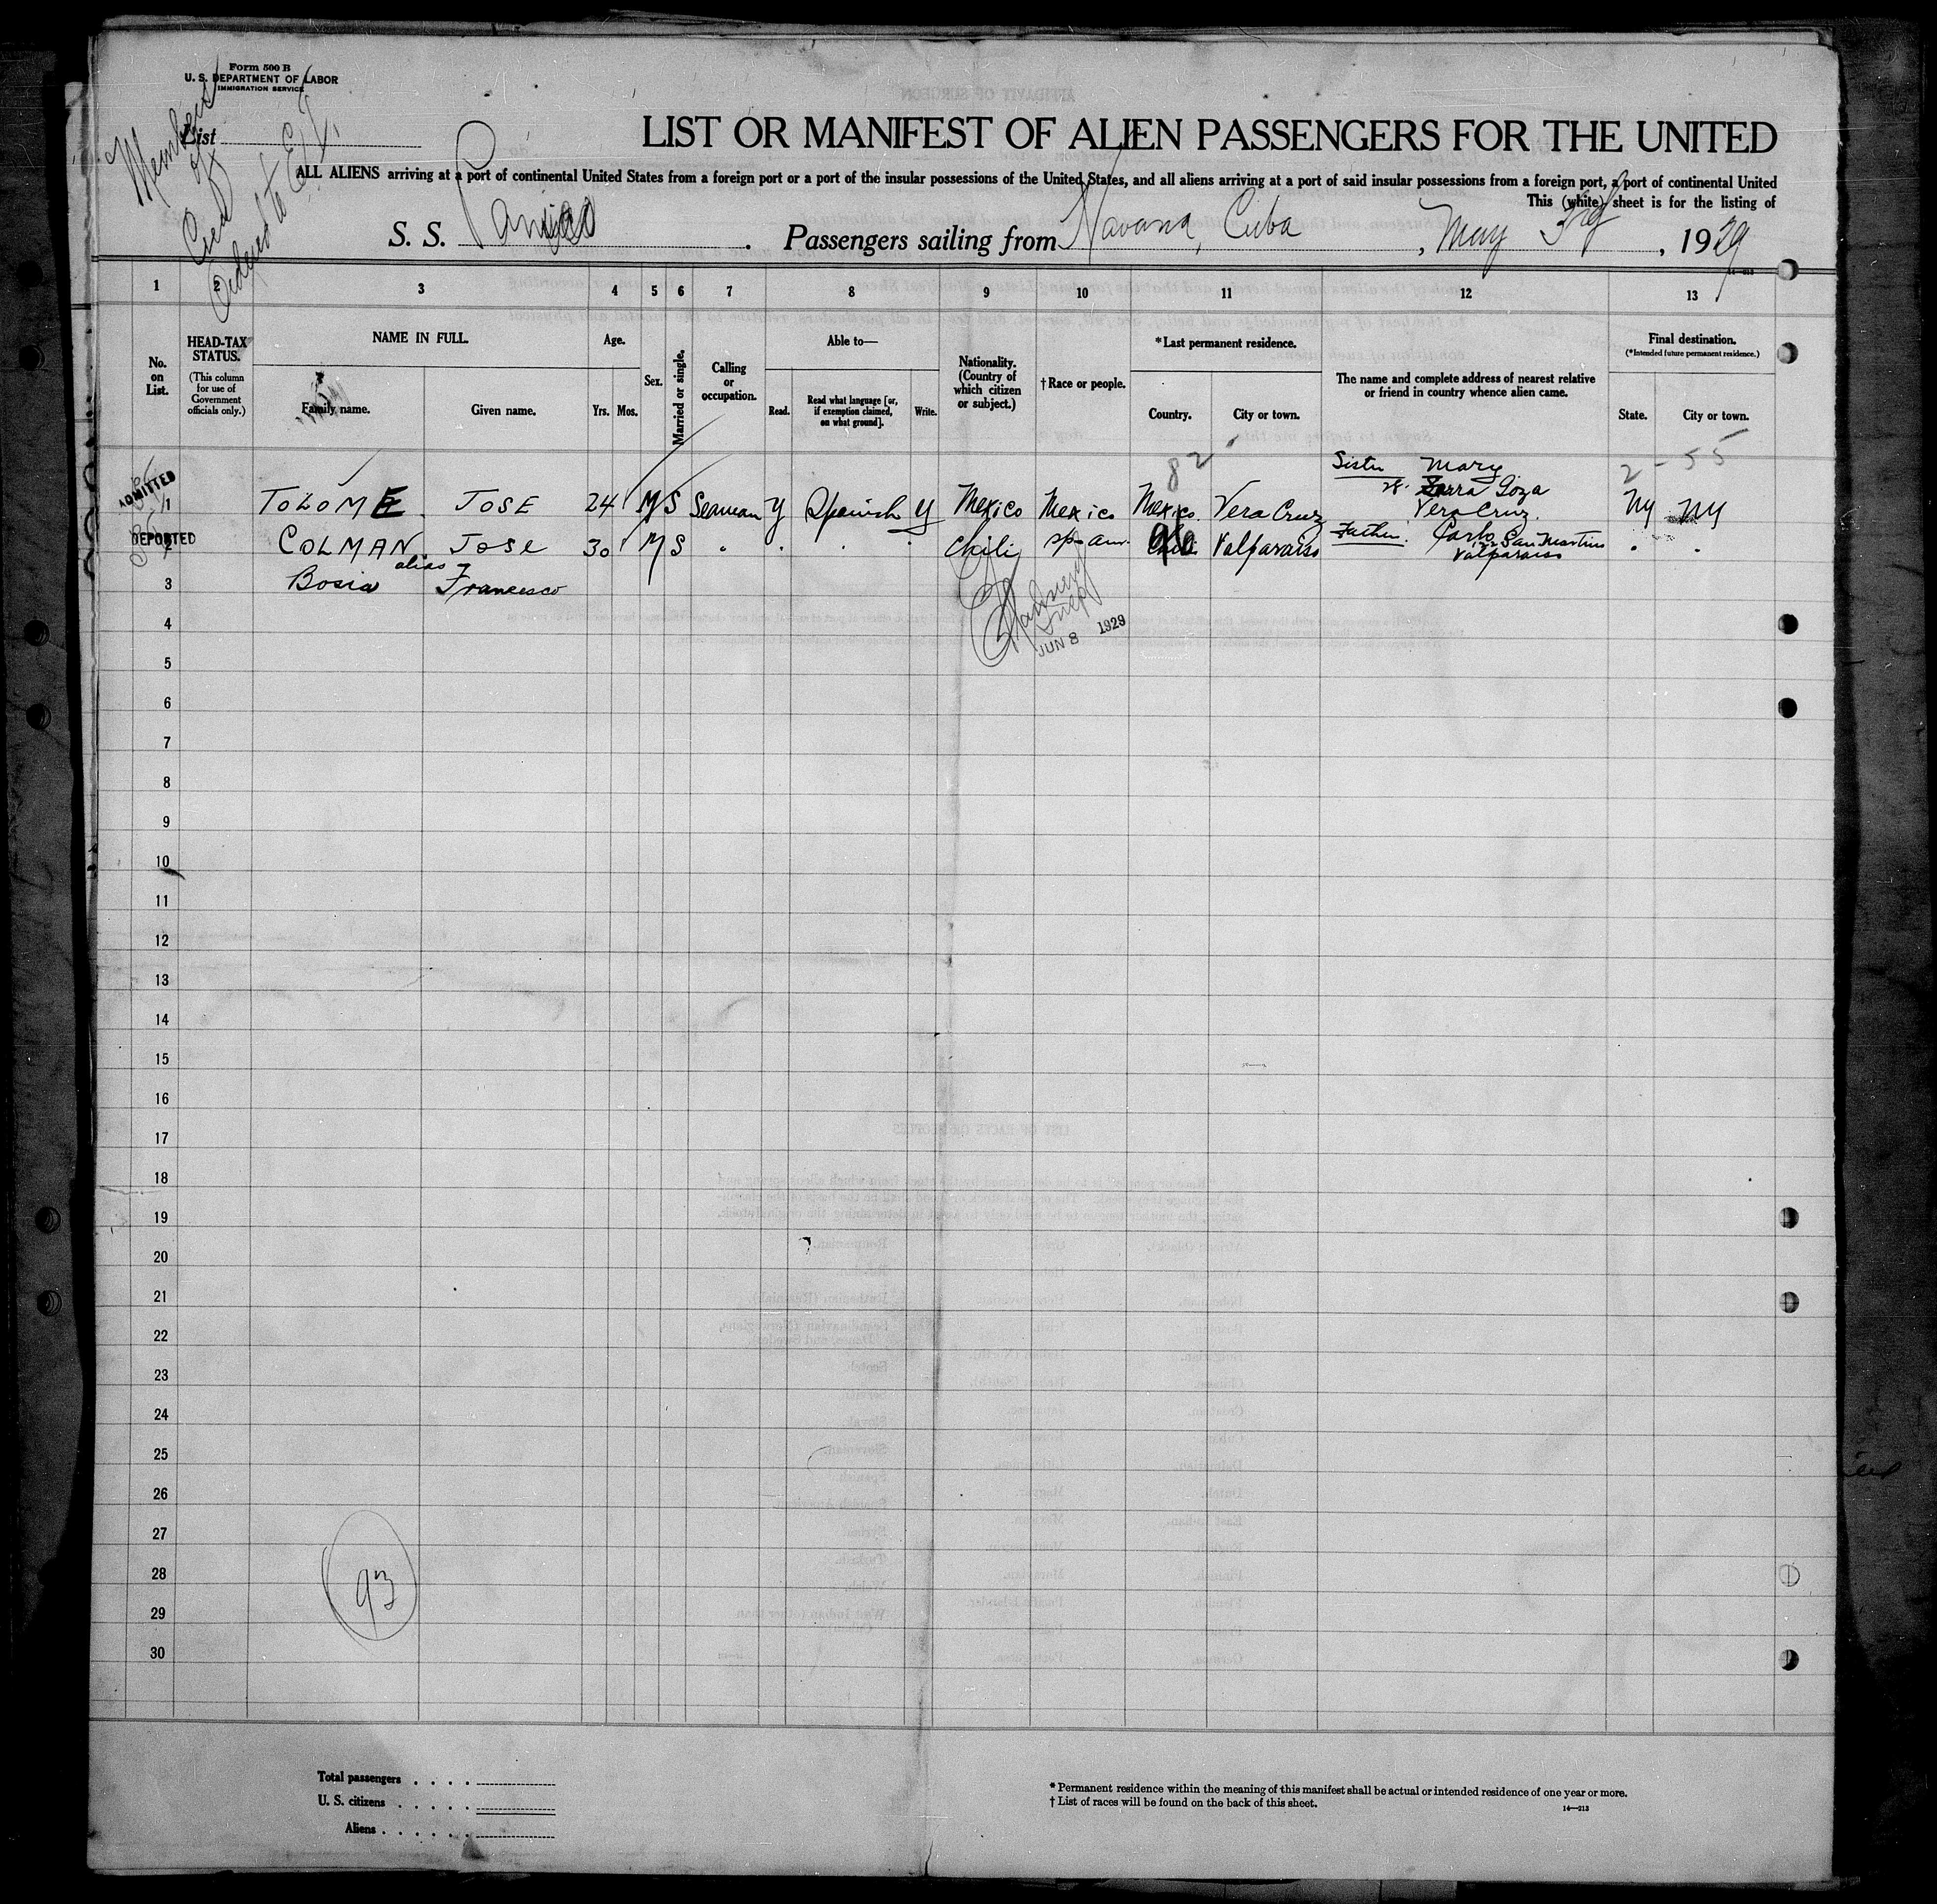 Form 500 B
U. S. DEPARTMENT OF LABOR
IMMIGRATION SERVICE
List
Members
of
Crew
Ordered to E. I.
LIST OR MANIFEST OF ALIEN PASSENGERS FOR THE UNITED
ALL ALIENS arriving at a port of continental United States from a foreign port or a port of the insular possessions of the United States, and all aliens arriving at a port of said insular possessions from a foreign port, a port of continental United
This (white) sheet is for the listing of
S. S. . Passengers sailing from Havana, Cuba , May 3rd , 1929
14—213
1 2 3 4 5 6 7 8 9 10 11 12 13
No. on List.
HEAD-TAX STATUS.
(This column for use of Government officials only.)
NAME IN FULL.
Family name. Given name.
Age.
Yrs. Mos.
Sex.
Married or single.
Calling or occupation.
Able to—
Read. Read what language [or, if exemption claimed, on what ground]. Write.
Nationality. (Country of which citizen or subject.)
†Race or people.
*Last permanent residence.
Country. City or town.
The name and complete address of nearest relative or friend in country whence alien came.
Final destination.
(*Intended future permanent residence.)
State. City or town.
82 2-55
ADMITTED
1 TOLOME JOSE 24 M S Seaman Y Spanish Y Mexico Mexico Mexico Vera Cruz Sister Mary
Goza
Vera Cruz. NY NY
DEPORTED
2 COLMAN JOSE 30 M S " " " " Chili Sp-Am. Valparaiso Father Carlo
San Martin
Valparaiso " "
alias
3 Bosia Francesco
JUN 8 1929
4
5
6
7
8
9
10
11
12
13
14
15
16
17
18
19
20
21
22
23
24
25
26
27
28
29
30
93
Total passengers . . . .
U. S. citizens . . . . .
Aliens . . . . . .
* Permanent residence within the meaning of this manifest shall be actual or intended residence of one year or more.
† List of races will be found on the back of this sheet.
14—213